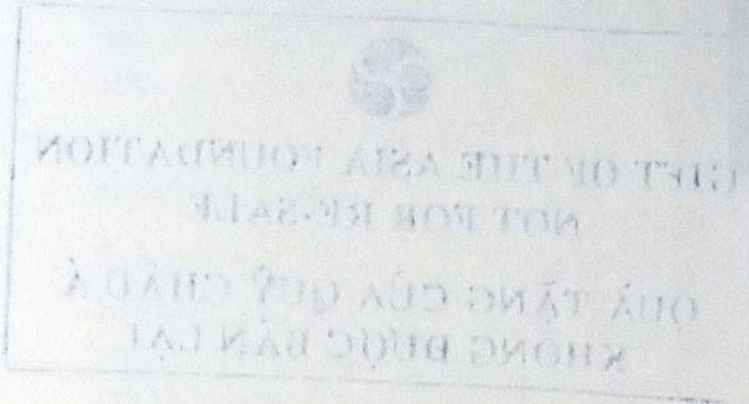 GIFT OF THE ASIA FOUNDATION
NOT FOR RE-SALE
QUÀ TẶNG CỦA QUỸ CHÂU Á
KHÔNG ĐƯỢC BÁN LẠI